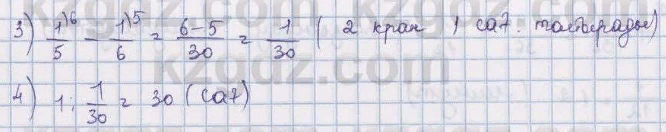 3) 1/5 ⁾⁶ - 1/6 ⁾⁵ = 6-5/30 = 1/30 ( 2 кран 1 сағ. толтырады)
4) 1 : 1/30 = 30 (сағ)
kzgdz.com